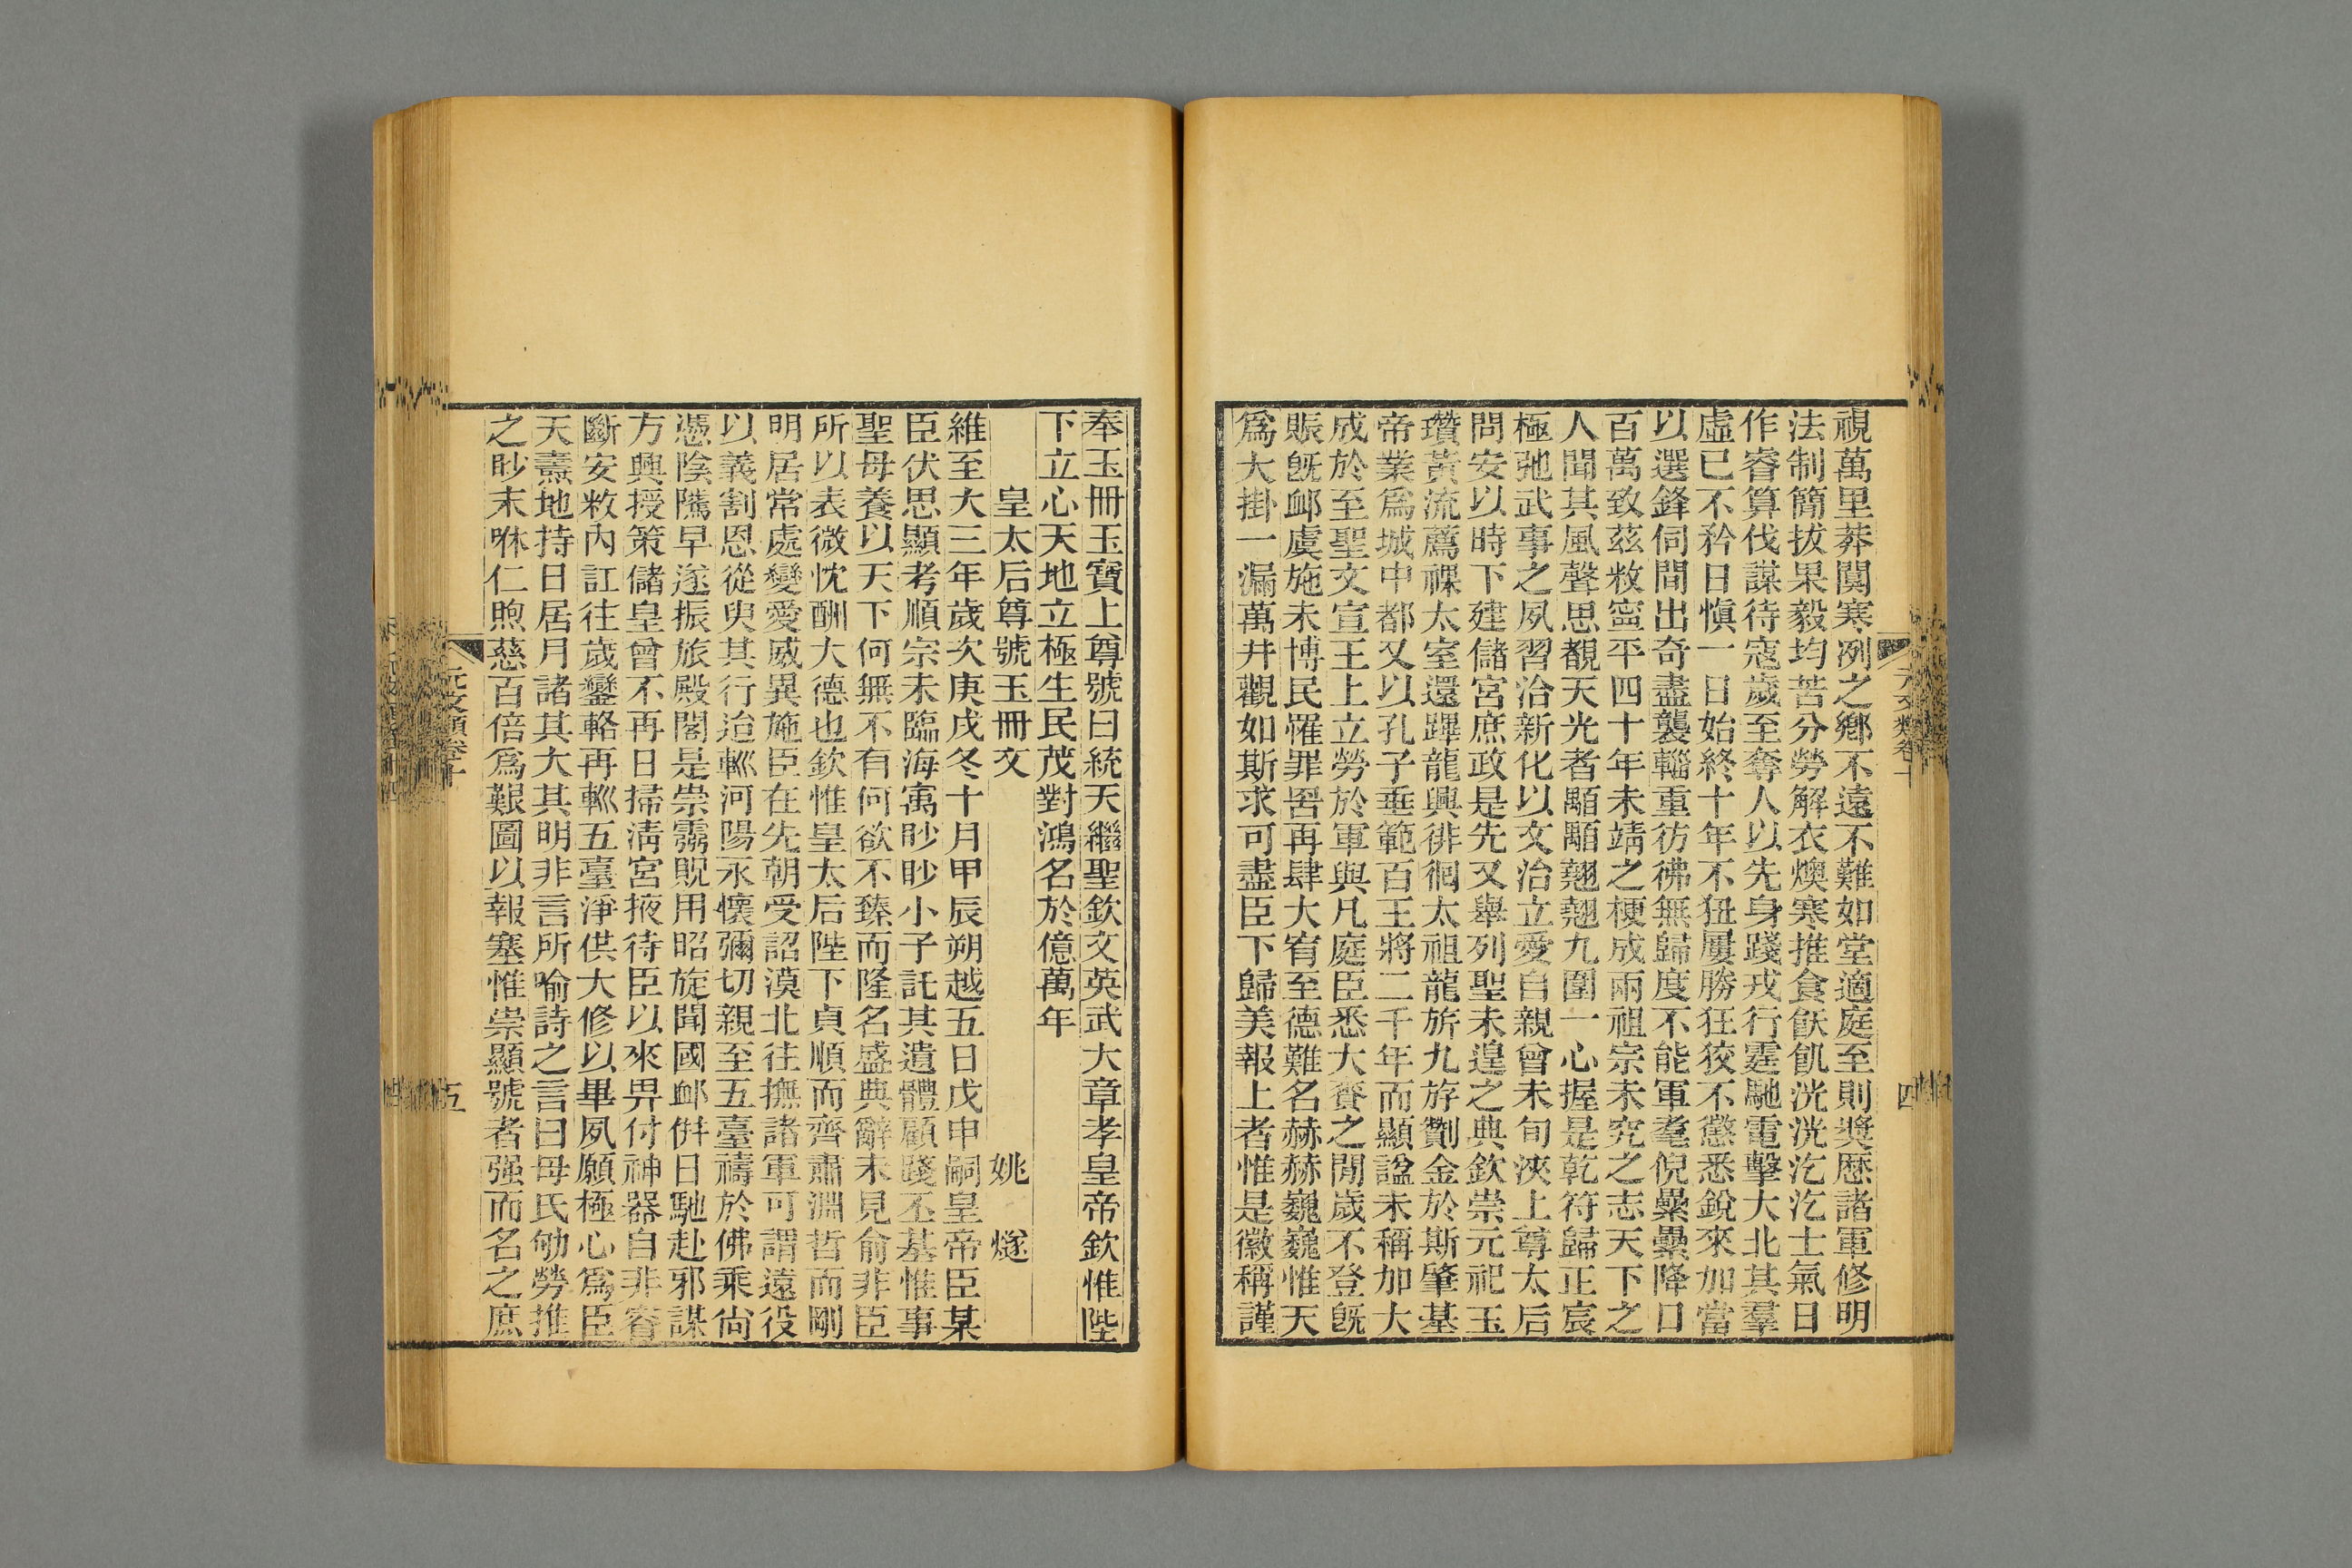 視萬里莽闃寒冽之鄉不遠不難如堂適庭至則獎歴諸軍修明
法制簡拔果毅均苦分勞解衣燠寒推食飫飢洸洸汔汔士氣日
作睿算伐謀待寇歲至奪人以先身踐戎行霆馳電擊大北其羣
虛已不矜日愼一日始終十年不狃屢勝狂狡不懲悉銳來加當
以選鋒伺間出奇盡襲輜重彷彿無歸度不能軍耄倪纍纍降口
百萬致茲敉寍平四十年未靖之梗成兩祖宗未究之志天下之
人聞其風聲思覩天光者顒顒翹翹九圍一心握是乾符歸正宸
極弛武事之夙習洽新化以文治立愛自親曾未旬浹上尊太后
問安以時下建儲宮庶政是先又舉列聖未遑之典欽崇元祀玉
瓚黃流薦祼太室還蹕龍興徘徊太祖龍旂九斿劗金於斯肇基
帝業爲城中都又以孔子垂範百王將二千年而顯諡未稱加大
成於至聖文宣王上立勞於軍與凡庭臣悉大賚之閒歲不登旣
賑旣卹虞施未博民罹罪罟再肆大宥至德難名赫赫巍巍惟天
爲大掛一漏萬井觀如斯求可盡臣下歸美報上者惟是徽稱謹
元文類卷十
四
奉玉冊玉寶上尊號曰統天繼聖欽文英武大章孝皇帝欽惟陛
下立心天地立極生民茂對鴻名於億萬年
皇太后尊號玉冊文 姚燧
維至大三年歲次庚戌冬十月甲辰朔越五日戊申嗣皇帝臣某
臣伏思顯考順宗未臨海㝢眇眇小子託其遺體顧踐丕基惟事
聖母養以天下何無不有何欲不臻而隆名盛典辭未見俞非臣
所以表微忱酬大德也欽惟皇太后陛下貞順而齊肅淵哲而剛
明居常處變愛威異施臣在先朝受詔漠北往撫諸軍可謂遠役
以義割恩從臾其行迨輀河陽永懷彌切親至五臺禱於佛乘尙
憑陰隲早遂振旅殿閣是崇霧貺用昭旋聞國卹倂日馳赴邪謀
方興授策儲皇曾不再日掃淸宮掖待臣以來畀付神器自非睿
斷安敉內訌往歲鑾輅再輀五臺淨供大修以畢夙願極心爲臣
天燾地持日居月諸其大其明非言所喻詩之言曰母氏劬勞推
之眇末咻仁煦慈百倍爲艱圖以報塞惟崇顯號者强而名之庶
元文類卷十
五